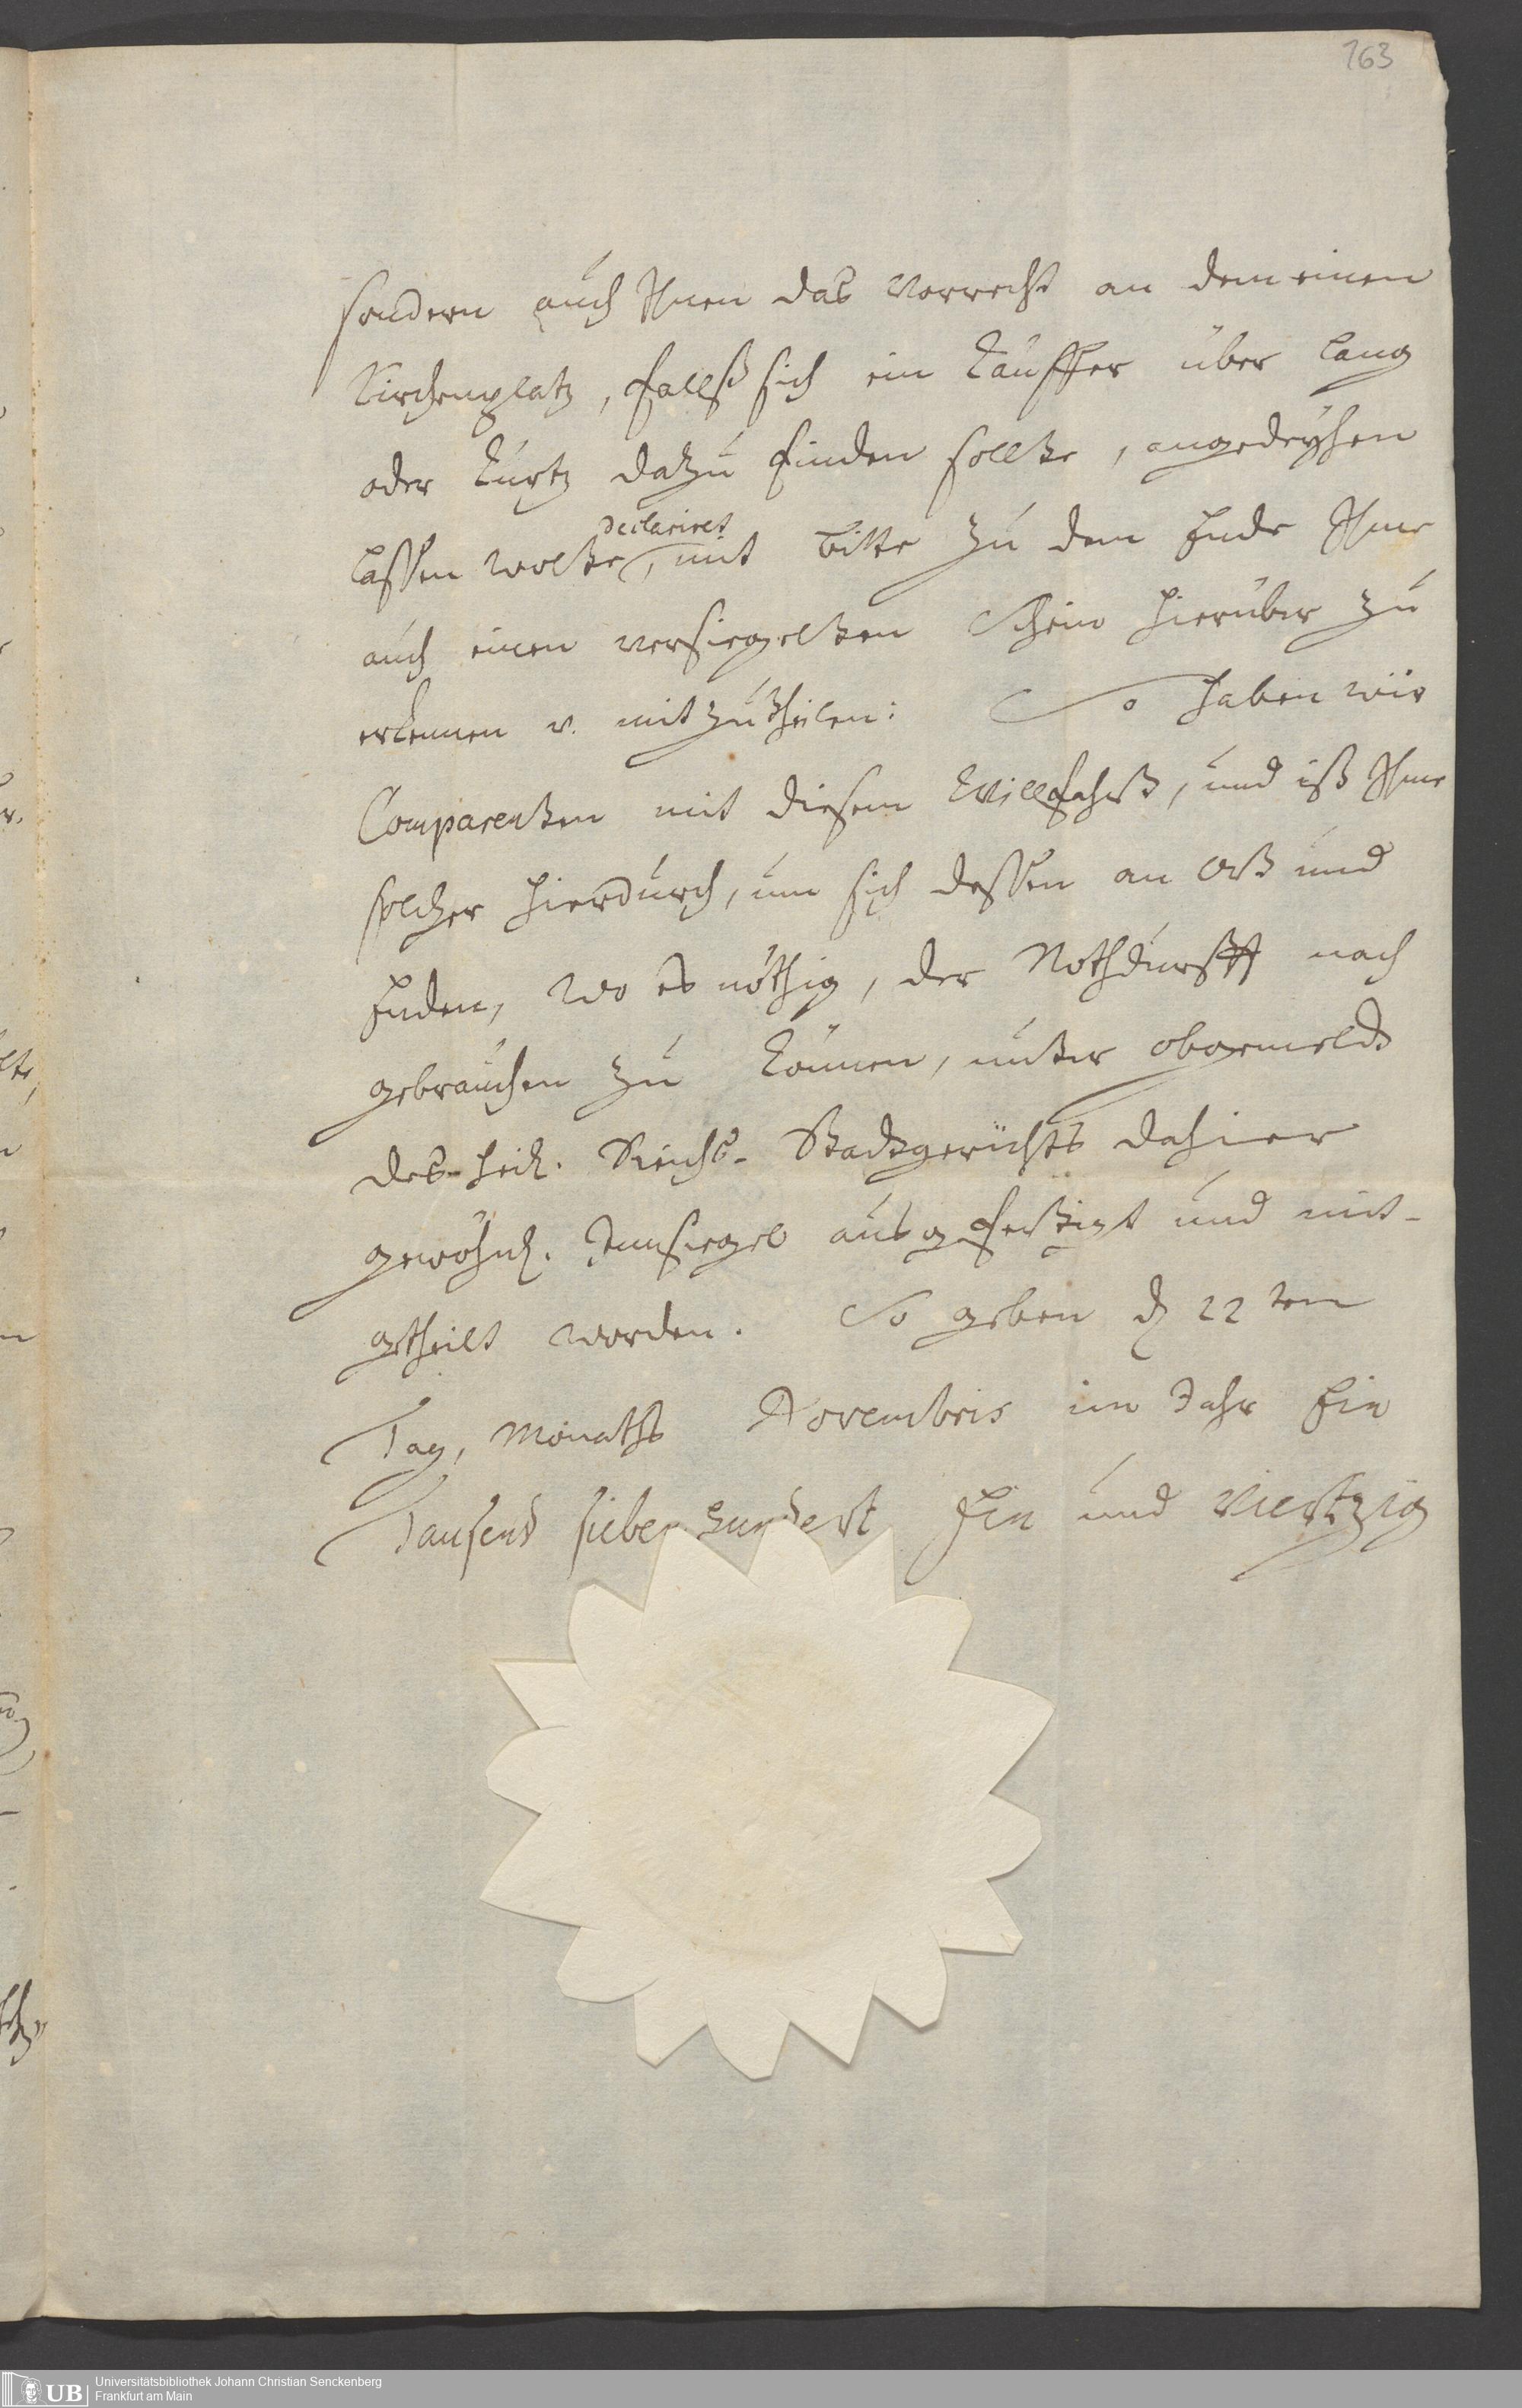 163
sondern auch Ihnen das Vorrecht an dem einen
Kirchenplatz, fallß sich ein Käuffer über lang
oder kurtz dazu finden sollte, angedeyhen
declariret
lassen wolte, mit bitte zu dem Ende Ihme
auch einen versiegelten Schein hierüber zu
erkennen v. mitzutheilen: So haben wir
Comparenten mit diesem Willfahrt, und ist Ihme
solcher hierdurch, um sich dessen an Ort und
Enden, wo es nöthig, der Nothdurfft nach
gebrauchen zu können, unter obgemeldt
des-heil. Reichs- Stadtgerichts dahier
gewöhnl. Innsiegel ausgefertigt und mit-
getheilt worden. So geben d. 22ten
Tag, Monaths Novembris im Jahr Ein
Tausend sieben hundert Ein und Viertzig
UB
Universitätsbibliothek Johann Christian Senckenberg
Frankfurt am Main